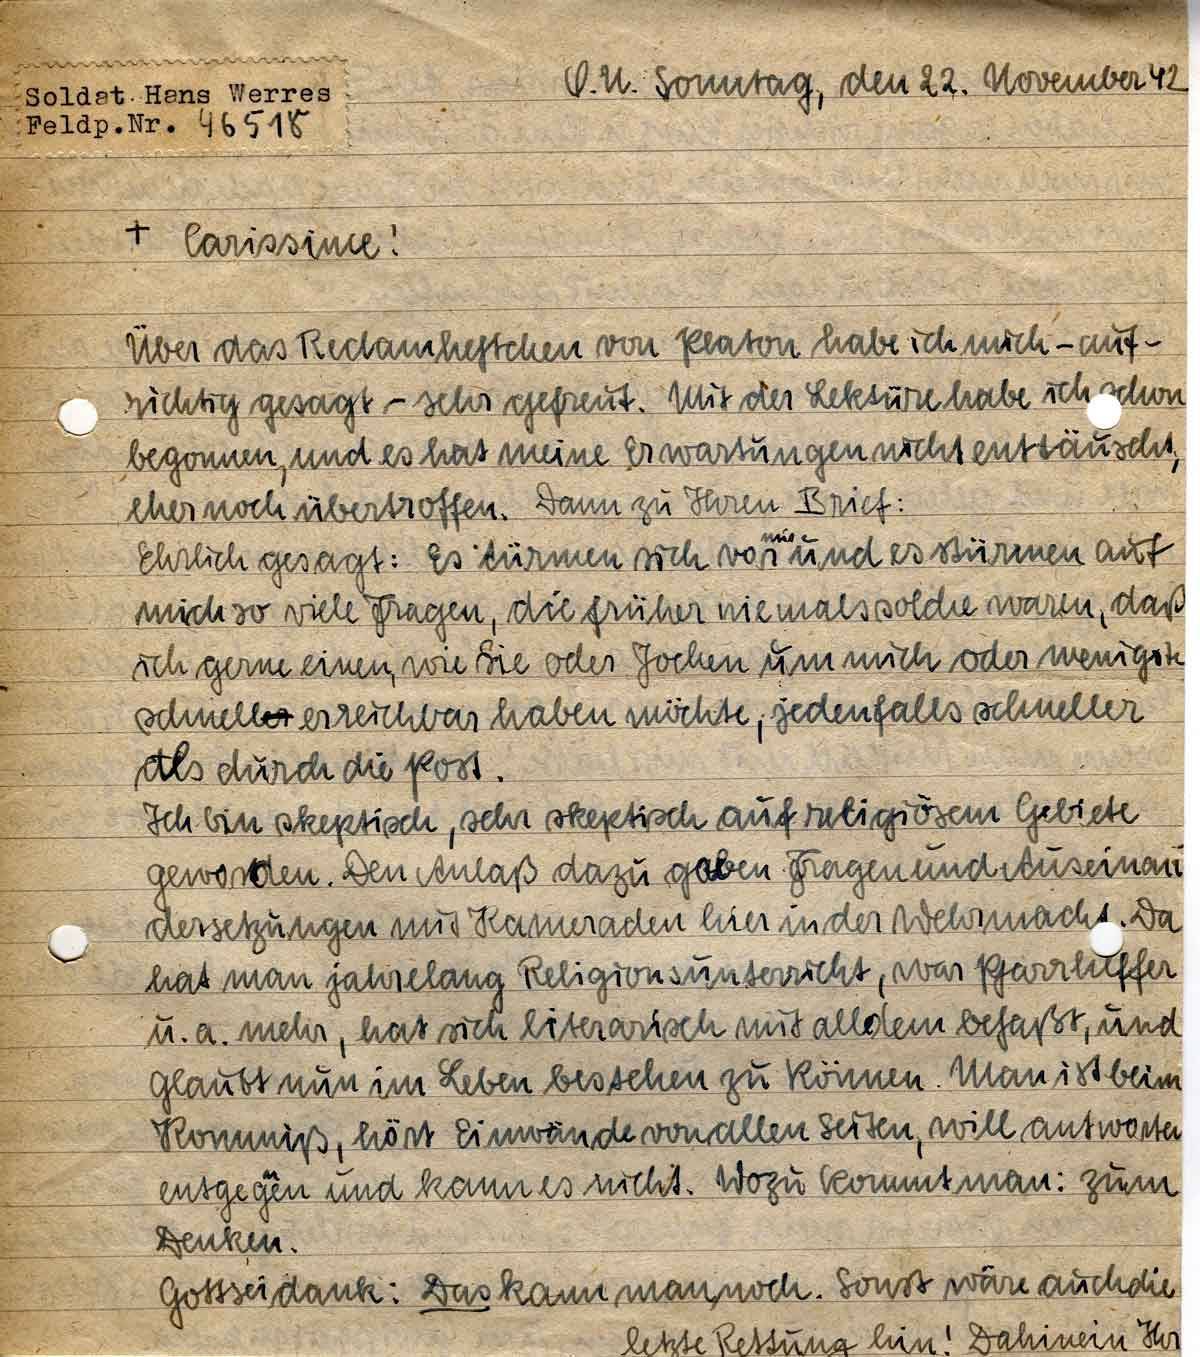 Soldat Hans Werres
Feldp.Nr. 46518
O.U. Sonntag, den 22. November 42
+ Carissime!
Über das Reclamheftchen von Platon habe ich mich – auf-
richtig gesagt – sehr gefreut. Mit der Lektüre habe ich schon
begonnen, und es hat meine Erwartungen nicht enttäuscht,
eher noch übertroffen. Dann zu Ihren Brief:
Ehrlich gesagt: Es türmen sich vor mir und es stürmen auf
mich so viele Fragen, die früher niemals solche waren, daß
ich gerne einen, wie Sie oder Jochen um mich oder wenigste
schneller erreichbar haben möchte, jedenfalls schneller
als durch die Post.
Ich bin skeptisch, sehr skeptisch auf religiösem Gebiete
geworden. Den Anlaß dazu gaben Fragen und Auseinan
dersetzungen mit Kameraden hier in der Wehrmacht. Da
hat man jahrelang Religionsunterricht, war Pfarrhelfer
u. a. mehr, hat sich literarisch mit alldem befaßt, und
glaubt nun im Leben bestehen zu können. Man ist beim
Kommiß, hört Einwände von allen Seiten, will antworten
entgegen und kann es nicht. Wozu kommt man: zum
Denken.
Gottseidank: Das kann man noch. Sonst wäre auch die
letzte Rettung hin! Dahinein Ihr